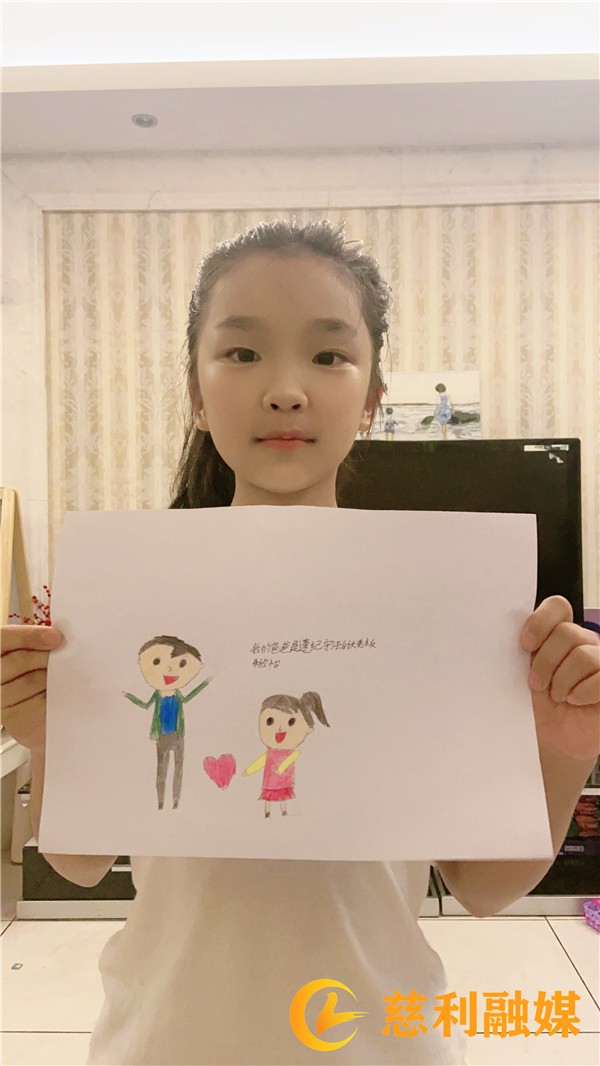 我的爸爸是遵纪守法的大老板
慈利融媒